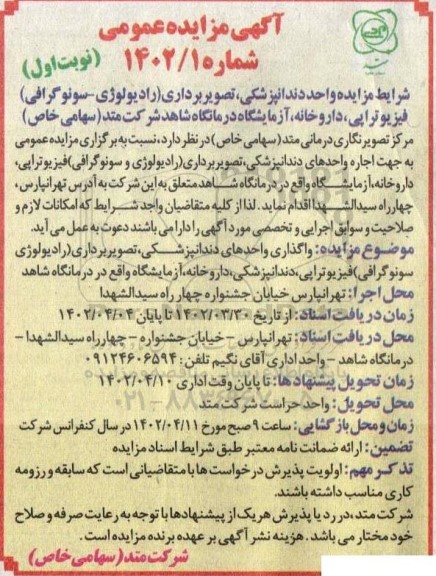 آگهی مزایده عمومی
شماره ۱۴۰۲/۱
(نوبت اول)
شرایط مزایده واحد دندانپزشکی، تصویربرداری (رادیولوژی-سونوگرافی)
فیزیوتراپی، داروخانه، آزمایشگاه درمانگاه شاهد شرکت متد (سهامی خاص)
مرکز تصویرنگاری درمانی متد (سهامی خاص) در نظر دارد، نسبت به برگزاری مزایده عمومی
به جهت اجاره واحدهای دندانپزشکی، تصویربرداری (رادیولوژی و سونوگرافی) فیزیوتراپی،
داروخانه، آزمایشگاه واقع در درمانگاه شاهد متعلق به این شرکت به آدرس تهرانپارس،
چهارراه سیدالشهدا اقدام نماید. لذا از کلیه متقاضیان واجد شرایط که امکانات لازم و
صلاحیت و سوابق اجرایی و تخصصی مورد آگهی را دارا می باشند دعوت به عمل می آید.
موضوع مزایده: واگذاری واحدهای دندانپزشکی، تصویربرداری (رادیولوژی
سونوگرافی) فیزیوتراپی، دندانپزشکی، داروخانه، آزمایشگاه واقع در درمانگاه شاهد
محل اجرا: تهرانپارس خیابان جشنواره چهار راه سیدالشهدا
زمان دریافت اسناد: از تاریخ ۱۴۰۲/۰۳/۳۰ تا پایان ۱۴۰۲/۰۴/۰۴
محل دریافت اسناد: تهرانپارس - خیابان جشنواره - چهارراه سیدالشهدا -
درمانگاه شاهد - واحد اداری آقای نگیم تلفن: ۰۹۱۲۴۶۰۶۵۹۴
زمان تحویل پیشنهادها: تا پایان وقت اداری ۱۴۰۲/۰۴/۱۰
محل تحویل: واحد حراست شرکت متد
زمان و محل بازگشایی: ساعت ۹ صبح مورخ ۱۴۰۲/۰۴/۱۱ در سالن کنفرانس شرکت
تضمین: ارائه ضمانت نامه معتبر طبق شرایط اسناد مزایده
تذکر مهم: اولویت پذیرش درخواست ها با متقاضیانی است که سابقه و رزومه
کاری مناسب داشته باشند.
شرکت متد، در رد یا پذیرش هر یک از پیشنهادها با توجه به رعایت صرفه و صلاح
خود مختار می باشد. هزینه نشر آگهی بر عهده برنده مزایده است.
شرکت متد (سهامی خاص)